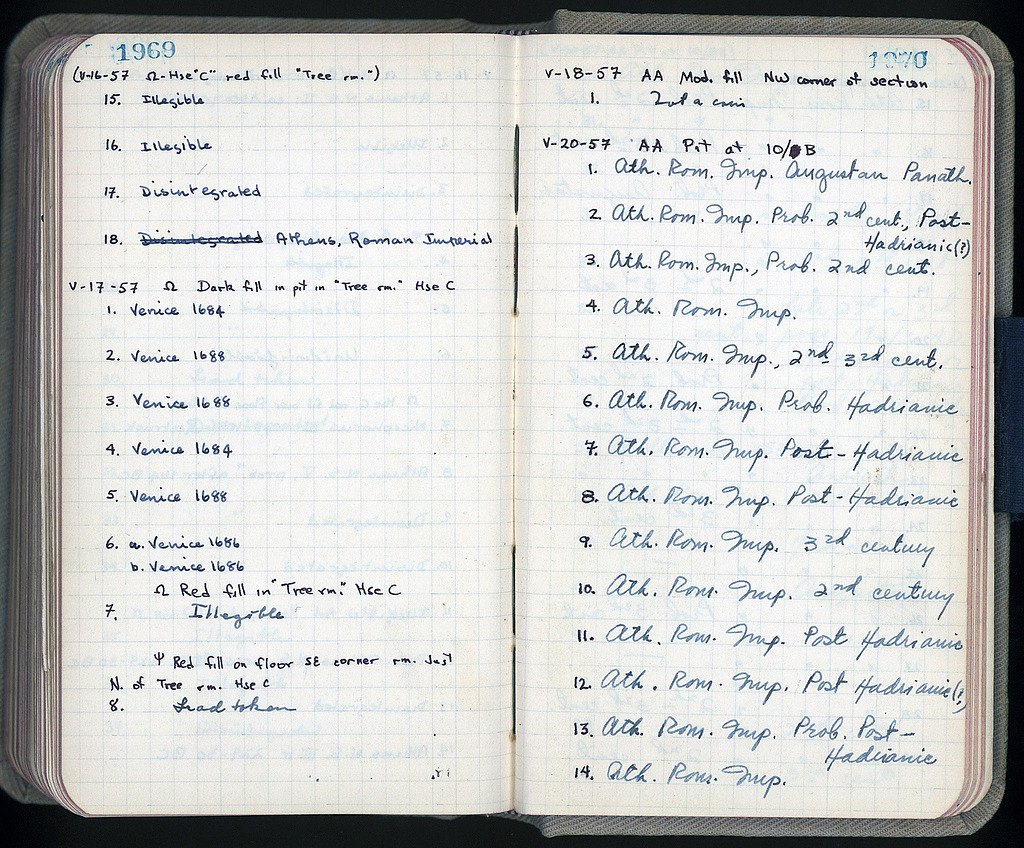 1969
(V-16-57 Ω-Hse "C" red fill "Tree rm.")
15. Illegible
16. Illegible
17. Disintegrated
18. Disintegrated Athens, Roman Imperial
V-17-57 Ω Dark fill in pit in "Tree rm." Hse C
1. Venice 1684
2. Venice 1688
3. Venice 1688
4. Venice 1684
5. Venice 1688
6. a. Venice 1686
b. Venice 1686
Ω Red fill in "Tree rm." Hse C
7. Illegible
Ψ Red fill on floor SE corner rm. Just
N. of Tree rm. Hse C
8. Lead token
1970
V-18-57 AA Mod. fill NW corner of section
1. Not a coin
V-20-57 AA Pit at 10/B
1. Ath. Rom. Imp. Augustan Panath.
2 Ath. Rom. Imp. Prob. 2nd cent., Post-
Hadrianic(?)
3. Ath. Rom. Imp., Prob. 2nd cent.
4. Ath. Rom. Imp.
5. Ath. Rom. Imp., 2nd-3rd cent.
6. Ath. Rom. Imp. Prob. Hadrianic
7. Ath. Rom. Imp. Post-Hadrianic
8. Ath. Rom. Imp. Post-Hadrianic
9. Ath. Rom. Imp. 3rd century
10. Ath. Rom. Imp. 2nd century
11. Ath. Rom. Imp. Post Hadrianic
12. Ath. Rom. Imp. Post Hadrianic(?)
13. Ath. Rom. Imp. Prob. Post-
Hadrianic
14. Ath. Rom. Imp.